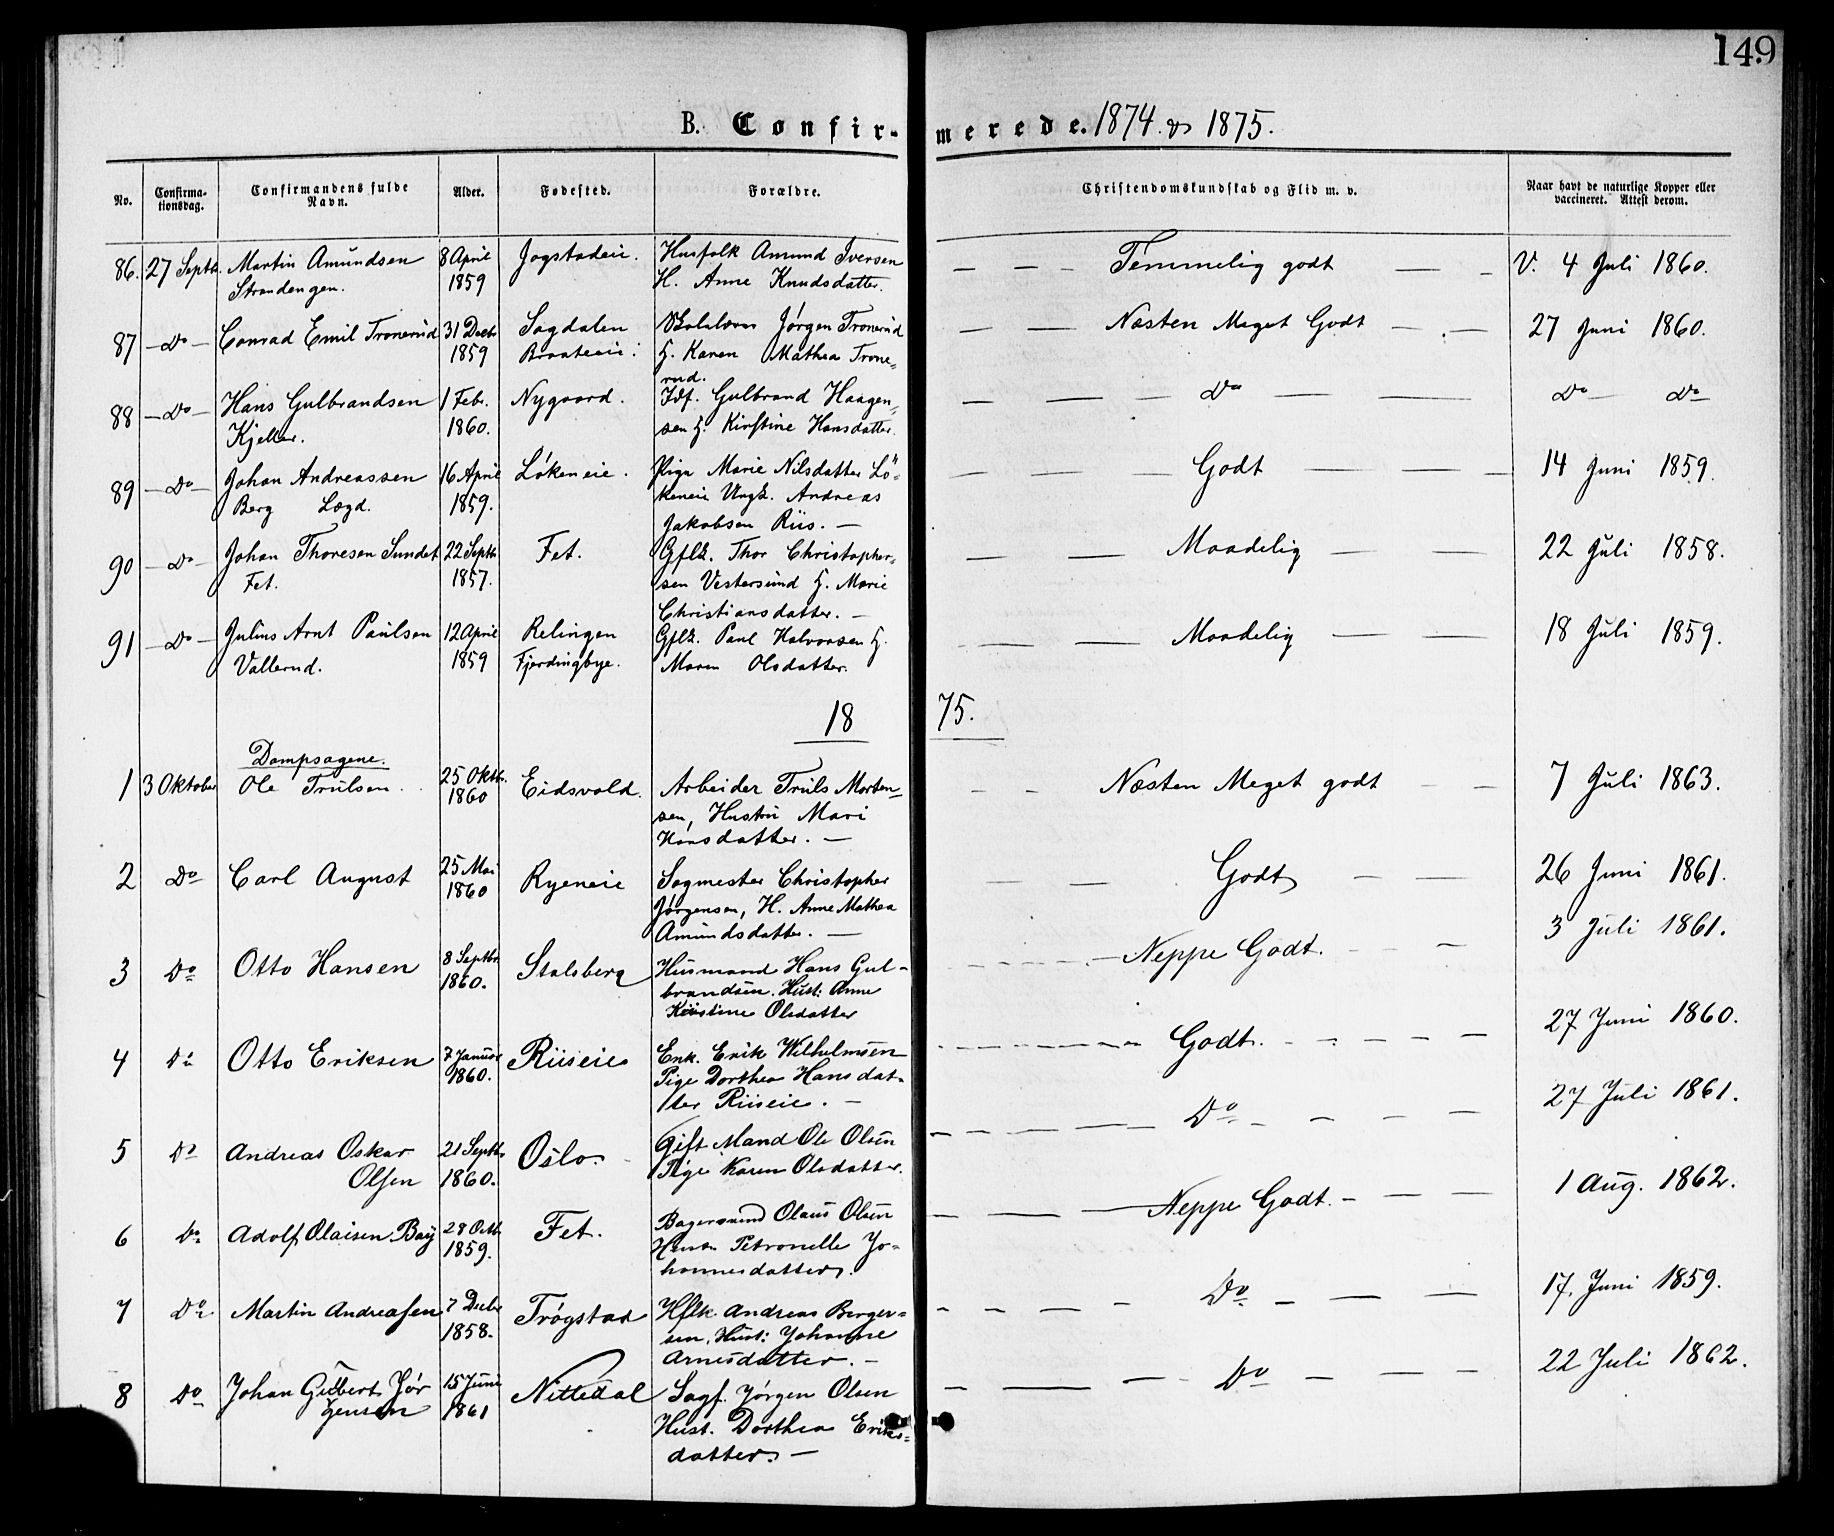 149
B. Confir- merede. 1874 & 1875.
No. Confirma-tionsdag. Confirmandens fulde Navn. Alder. Fødested. Forældre. Christendomskundskab og Flid m. v. Naar havt de naturlige Kopper eller vaccineret. Attest derom.
86. 27 Septb. Martin Amundsen 8 April Jogstadeie. Husfolk Amund Iversen — — — Temmelig godt — — V. 4 Juli 1860.
Strandengen. 1859 H. Anne Knudsdatter.
87 —Do— Conrad Emil Tronerud 31 Decbr Sagdalen Jørgen Tronerud — — Næsten Meget Godt — — 27 Juni 1860.
1859 Braateeie. H. Karen Mathea Trone=
rud.
88 —Do— Hans Gulbrandsen 1 Febr. Nygaard. Gulbrand Haagen= — — — Do — — Do — Do
Kjeller. 1860. sen H. Kirstine Hansdatter.
89 —Do— Johan Andreassen 16 April Løkeneie. Pige Marie Nilsdatter Lö= — — — Godt — — — 14 Juni 1859.
Berg Lægd. 1859. keneie Ungk. Andreas
Jakobsen Riis. —
90 —Do— Johan Thoresen Sundet 22 Septb. Fet. Gflk. Thor Christopher= — — Maadelig — — 22 Juli 1858.
Fet. 1857. sen Vestersund H. Marie
Christiansdatter. —
91 —Do— Julius Arnt Paulsen 12 April Relingen Gflk. Paul Halvorsen H. — — Maadelig — — 18 Juli 1859.
Vallerud. 1859 Fjerdingbye. Maren Olsdatter.
18 75.
Dampsagene.
1 3 Oktober Ole Trulsen 25 Oktb. Eidsvold. Arbeider Truls Morten= — — Næsten Meget godt — — 7 Juli 1863.
1860 sen, Hustru Mari
Hansdatter. —
2 Do Carl August 25 Mai Ryeneie Sagmester Christopher — — Godt — — 26 Juni 1861.
1860 Jørgensen, H. Anne Mathea
Amundsdatter. —
3 Do Otto Hansen 8 Septbr. Stalsberg Husmand Hans Gul- — — Neppe Godt. — — 3 Juli 1861.
1860. brandsen. Hust: Anne
Kristine Olsdatter
4 Do Otto Eriksen 7 Januar Riiseie Enk. Erik Wilhelmsen — — Godt. — — 27 Juni 1860.
1860. Pige Dorthea Hansdat-
ter Riiseie. —
5 Do Andreas Oskar 21 Septb. Oslo. Gift Mand Ole Olsen — — Do — — 27 Juli 1861.
Olsen 1860. Pige Karen Olsdatter.
6 Do Adolf Olaisen Bøy 28 Octb. Fet. Bagersvend Olaus Olsen — — Neppe Godt. — — 1 Aug. 1862.
1859. Hust. Petronelle Jo-
hannesdatter.
7 Do Martin Andreasen 7 Decbr Trøgstad Hflk. Andreas Berger= — — Do — — 17. Juni 1859.
1858. sen, Hust: Johanne
Arnesdatter. —
8 Do Johan Gulbert Jør 15 Juni Nittedal Sagf. Jørgen Olsen — — Do — — 22 Juli 1862.
gensen 1861 Hust. Dorthea Eriks=
datter. —